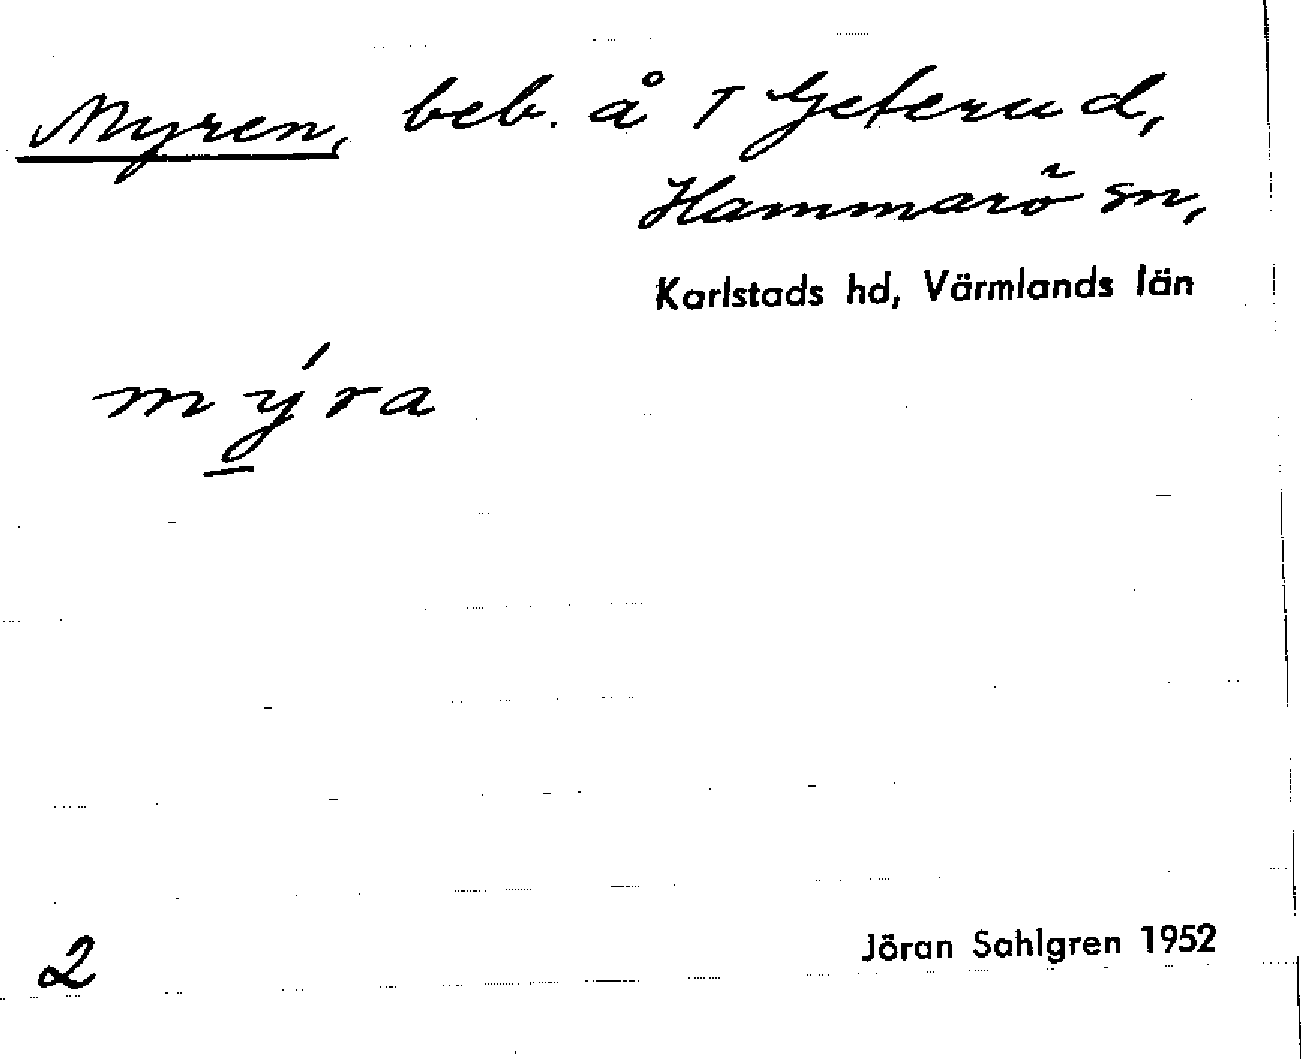 Myren, beb. å T Geterud,
Hammarö sn,
Karlstads hd, Värmlands län
mýra
2
Jöran Sahlgren 1952